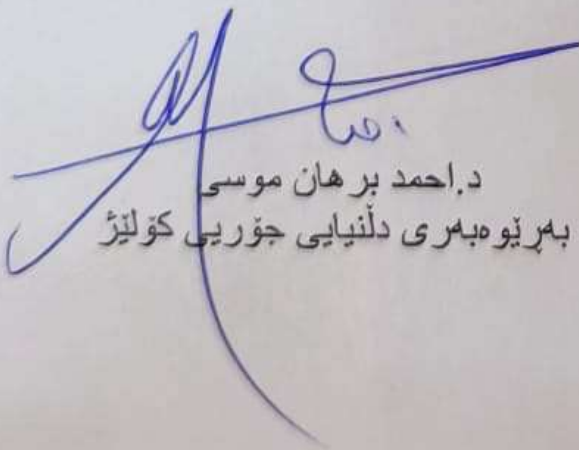 د.احمد برهان موسى
بەڕێوەبەری دڵنیایی جۆریی کۆلێژ